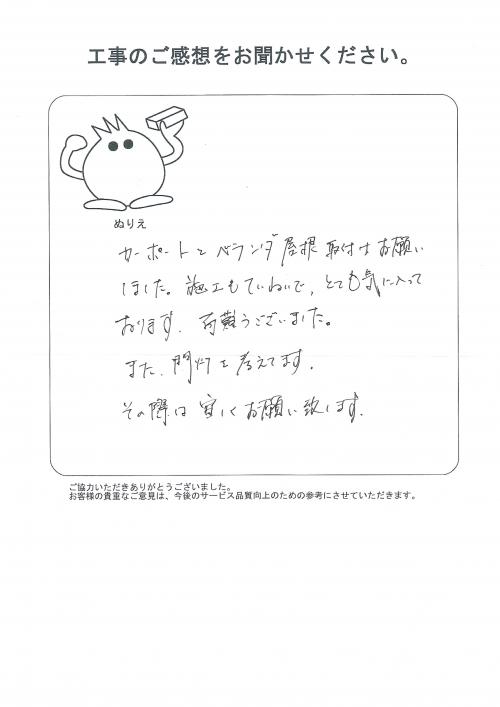 工事のご感想をお聞かせください。
ぬりえ
カーポートとベランダ屋根取付けお願い
しました。施工もていねいで、とても気に入って
おります。有難うございました。
また、門灯を考えてます。
その際は宜しくお願い致します。
ご協力いただきありがとうございました。
お客様の貴重なご意見は、今後のサービス品質向上のための参考にさせていただきます。